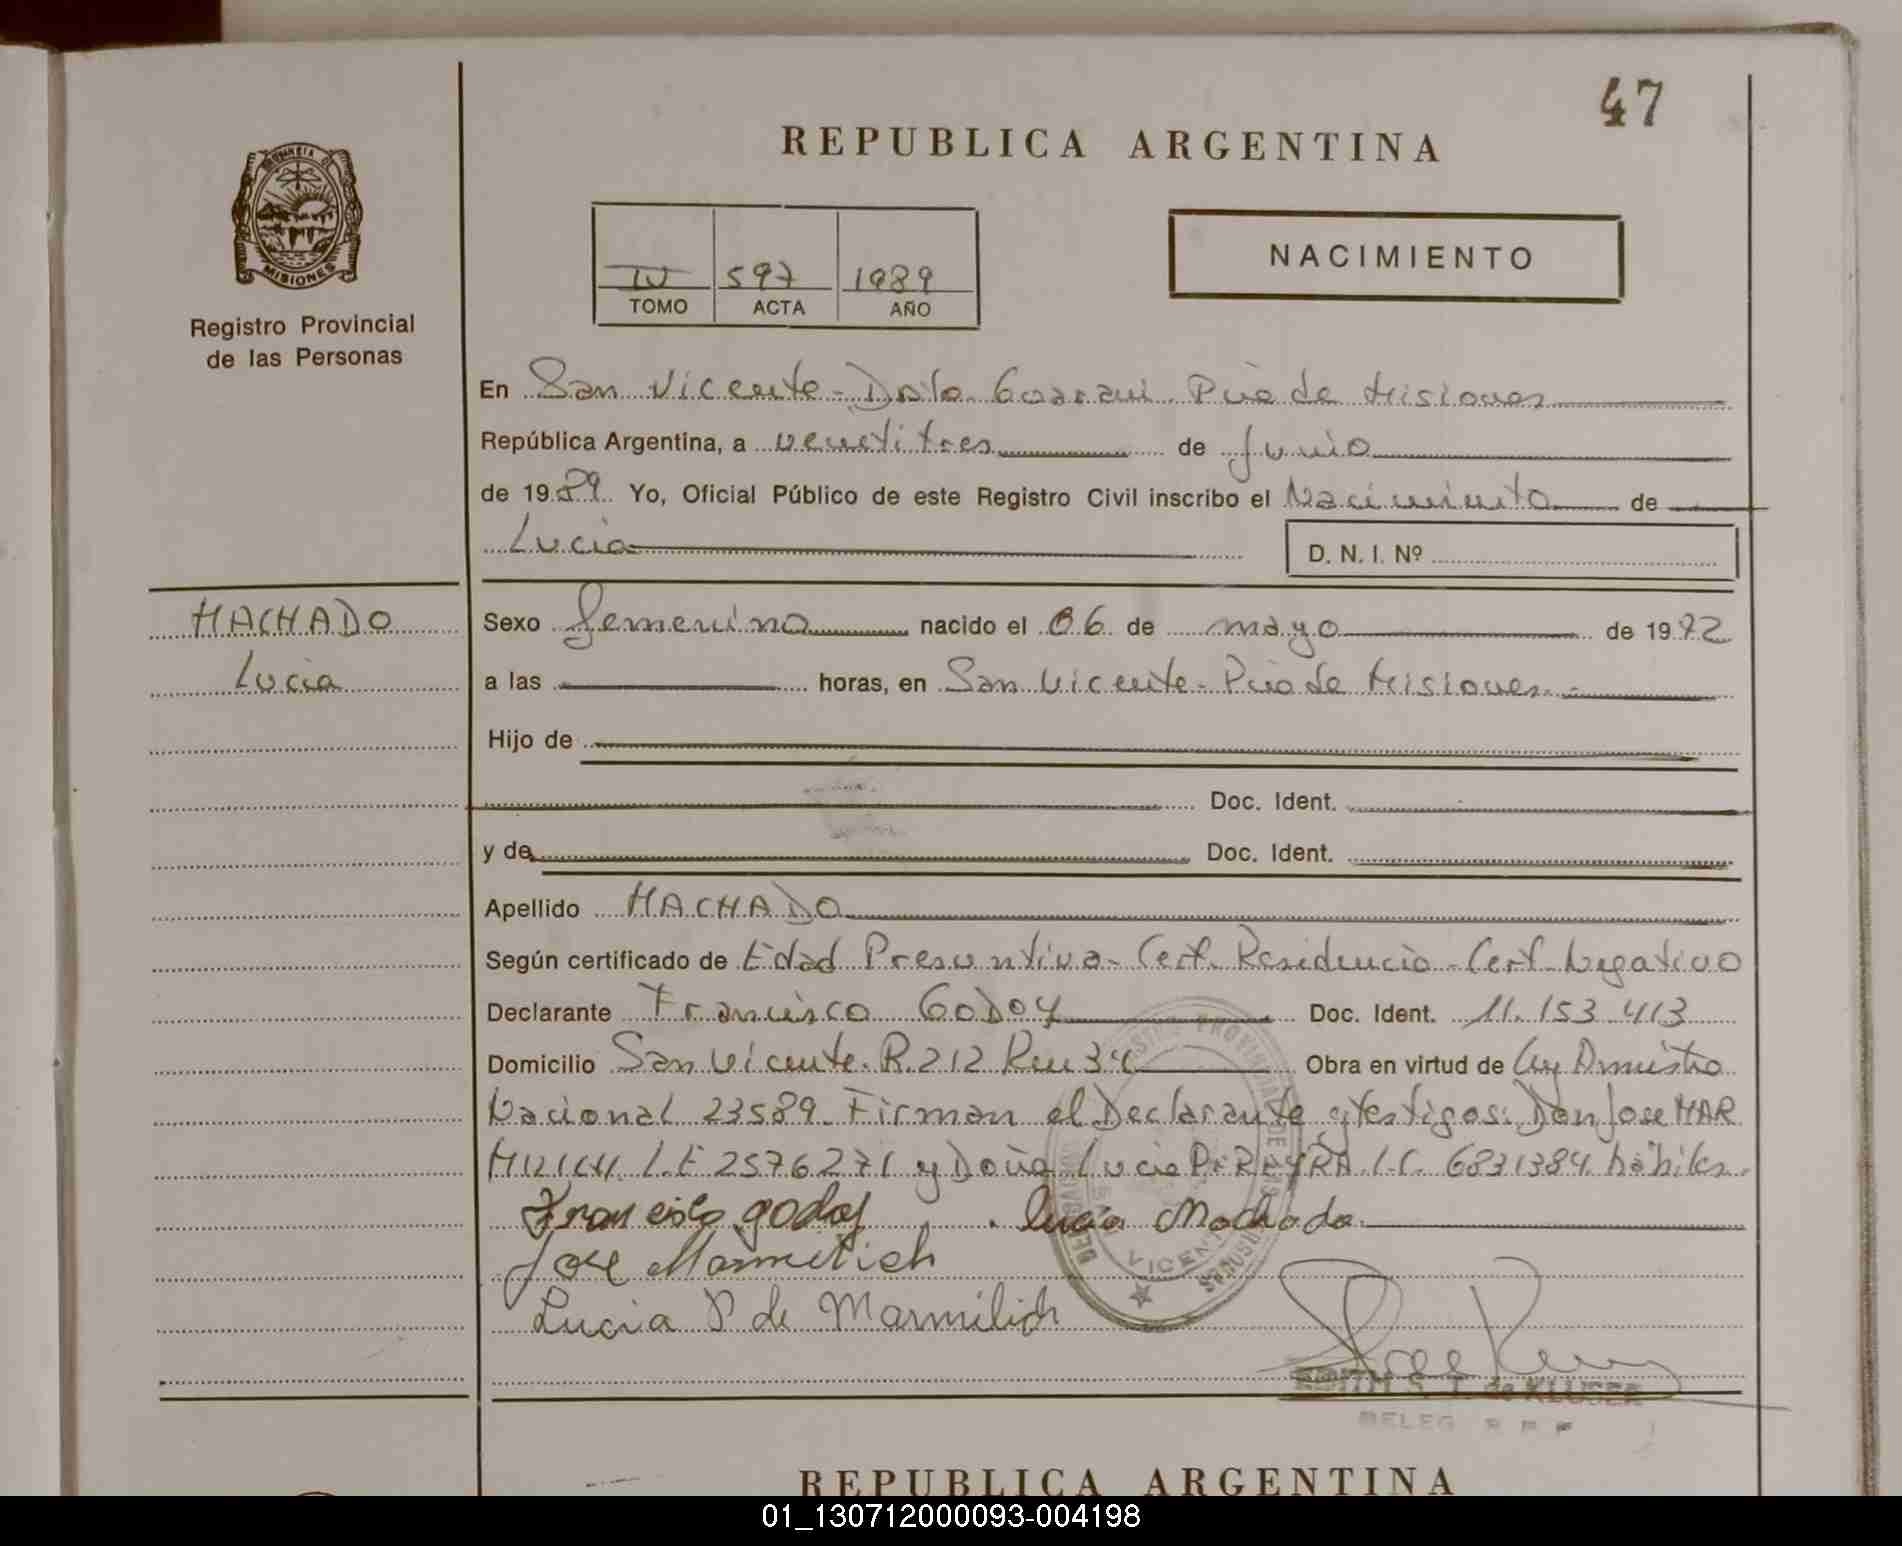 47
REPUBLICA ARGENTINA
PROVINCIA DE
MISIONES
Registro Provincial
de las Personas
IV 597 1989
TOMO ACTA AÑO
NACIMIENTO
En San Vicente - Dpto. Guaraní. Pcia de Misiones
República Argentina, a veintitres de Junio
de 1989 Yo, Oficial Público de este Registro Civil inscribo el Nacimiento de
Lucia
D. N. I. Nº
MACHADO
Lucia
Sexo femenino nacido el 06 de mayo de 1972
a las horas, en San Vicente - Pcia de Misiones.-
Hijo de
Doc. Ident.
y de Doc. Ident.
Apellido MACHADO
Según certificado de Edad Presuntiva - Cert. Residencia - Cert. Negativo
Declarante Francisco GODOY Doc. Ident. 11.153.413
Domicilio San Vicente. R. 212 Km 34 Obra en virtud de Ley Amnistia
Nacional 23589. Firman el Declarante y testigos: Don Jose MAR
MILICH L.E 2576271 y Doña Lucia PEREYRA L.C. 6831384 hábiles.
Francisco godoy Lucia Machado
Jose Marmilich
Lucia P de Marmilich
VICENTE
EDITH S. T. de KLUSER
DELEG R P P
REPUBLICA ARGENTINA
01_130712000093-004198